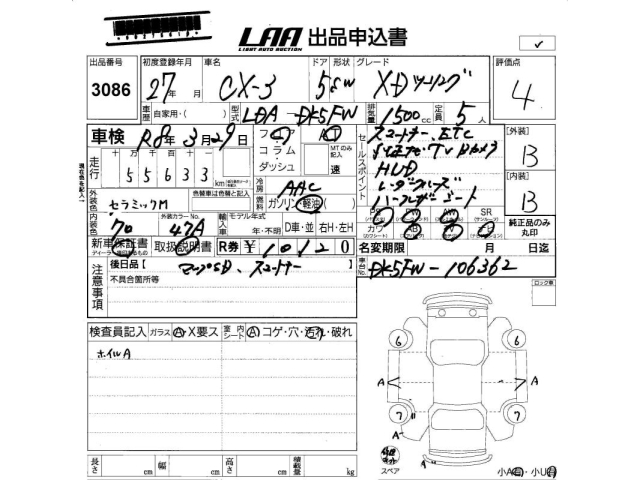 LAA 出品申込書
LIGHT AUTO AUCTION
出品番号 初度登録年月 車名 ドア 形状 グレード 評価点
3086 27年 月 CX-3 5 SW XDツーリング 4
車歴 自家用・( ) 型式 LDA-DK5FW 排気量 1500cc 定員 5人
車検 R8年3月29日 フロア AT
走行 十万 万 千 百 十 一 km コラム MTのみ記入
55633 ダッシュ 速
セールスポイント
スマートキー、ETC
HUD
レーダークルーズ
ハーフレザーシート
[外装] B
[内装] B
現在色を記入
外装色 セラミックM 色替車は色替と記入 冷房 AAC
燃料 ガソリン・軽油( )
PS PW AW SR
カワ 純正品のみ丸印
内装色 黒 外装カラーNo. 47A 輸入車 モデル年式 年・不明 D車・並 右H・左H
新車保証書 取扱説明書 R券 ¥10120 名変期限 月 日迄
注意事項 後日品 マップSD、スマートキー
不具合箇所等
車台No. DK5FW-106362
ロック車
検査員記入 ガラス A・X要ス 室内シート A コゲ・穴・汚れ・破れ
ホイルA
6 6
A A
7 7
A A
スペア
小A有・小U有
長さ cm 幅 cm 高さ cm 積載量 kg